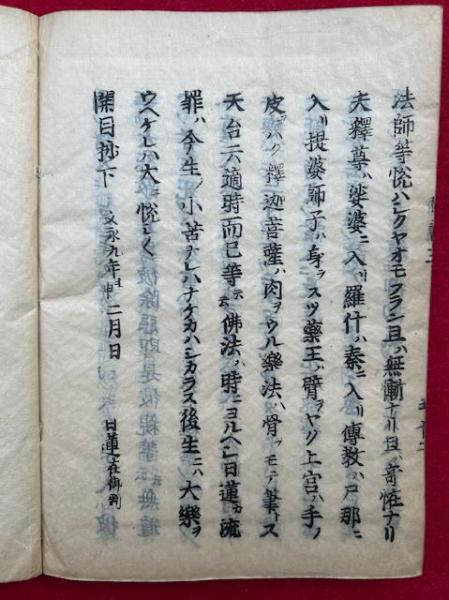 法師等悅ハシクヤオモフラン且ハ無慚ナリ且ハ奇恠ナリ
夫釋尊ハ娑婆ニ入リ羅什ハ秦ニ入リ傳教ハ尸那ニ
入リ提婆師子ハ身ヲスツ藥王ハ臂ヲヤク上宮ハ手ノ
皮ヲハク釋迦菩薩ハ肉ヲウル樂法ハ骨ヲモテ筆トス
天台云適時而已等云云佛法ハ時ニヨルヘシ日蓮カ流
罪ハ今生ノ小苦ナレハナケカハシカラス後生ニハ大樂ヲ
ウヘケレハ大ニ悅シ
開目抄下 文永九年申二月日 日蓮在御判